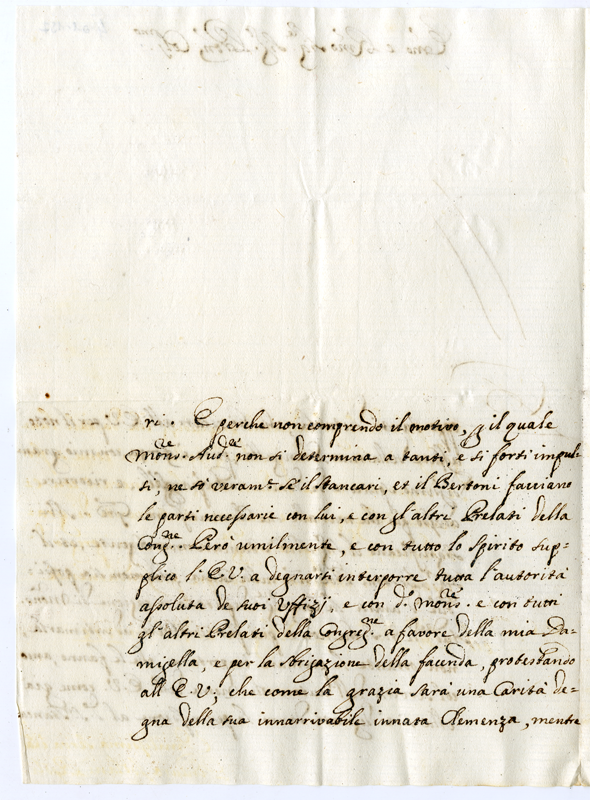 ri. E perche non comprendo il motivo, ꝑ il quale
Mons.re Aud.re non si determina a tanti, e si forti impul=
si, ne so veram.e se il Stancari, et il Bertoni facciano
le parti necessarie con lui, e con gl'altri Prelati della
Cong.ne. Però umilmente, e con tutto lo spirito sup=
plico l'E.V. a degnarsi interporre tutta l'autorità
assoluta de suoi Uffizij, e con d.o Mons.re e con tutti
gl'altri Prelati della Congreg.ne a favore della mia Da=
migella, e per la sbrigazione della facenda, protestando
all'E.V., che come la grazia sarà una Carità de=
gna della sua innarrivabile innata Clemenza, mentre